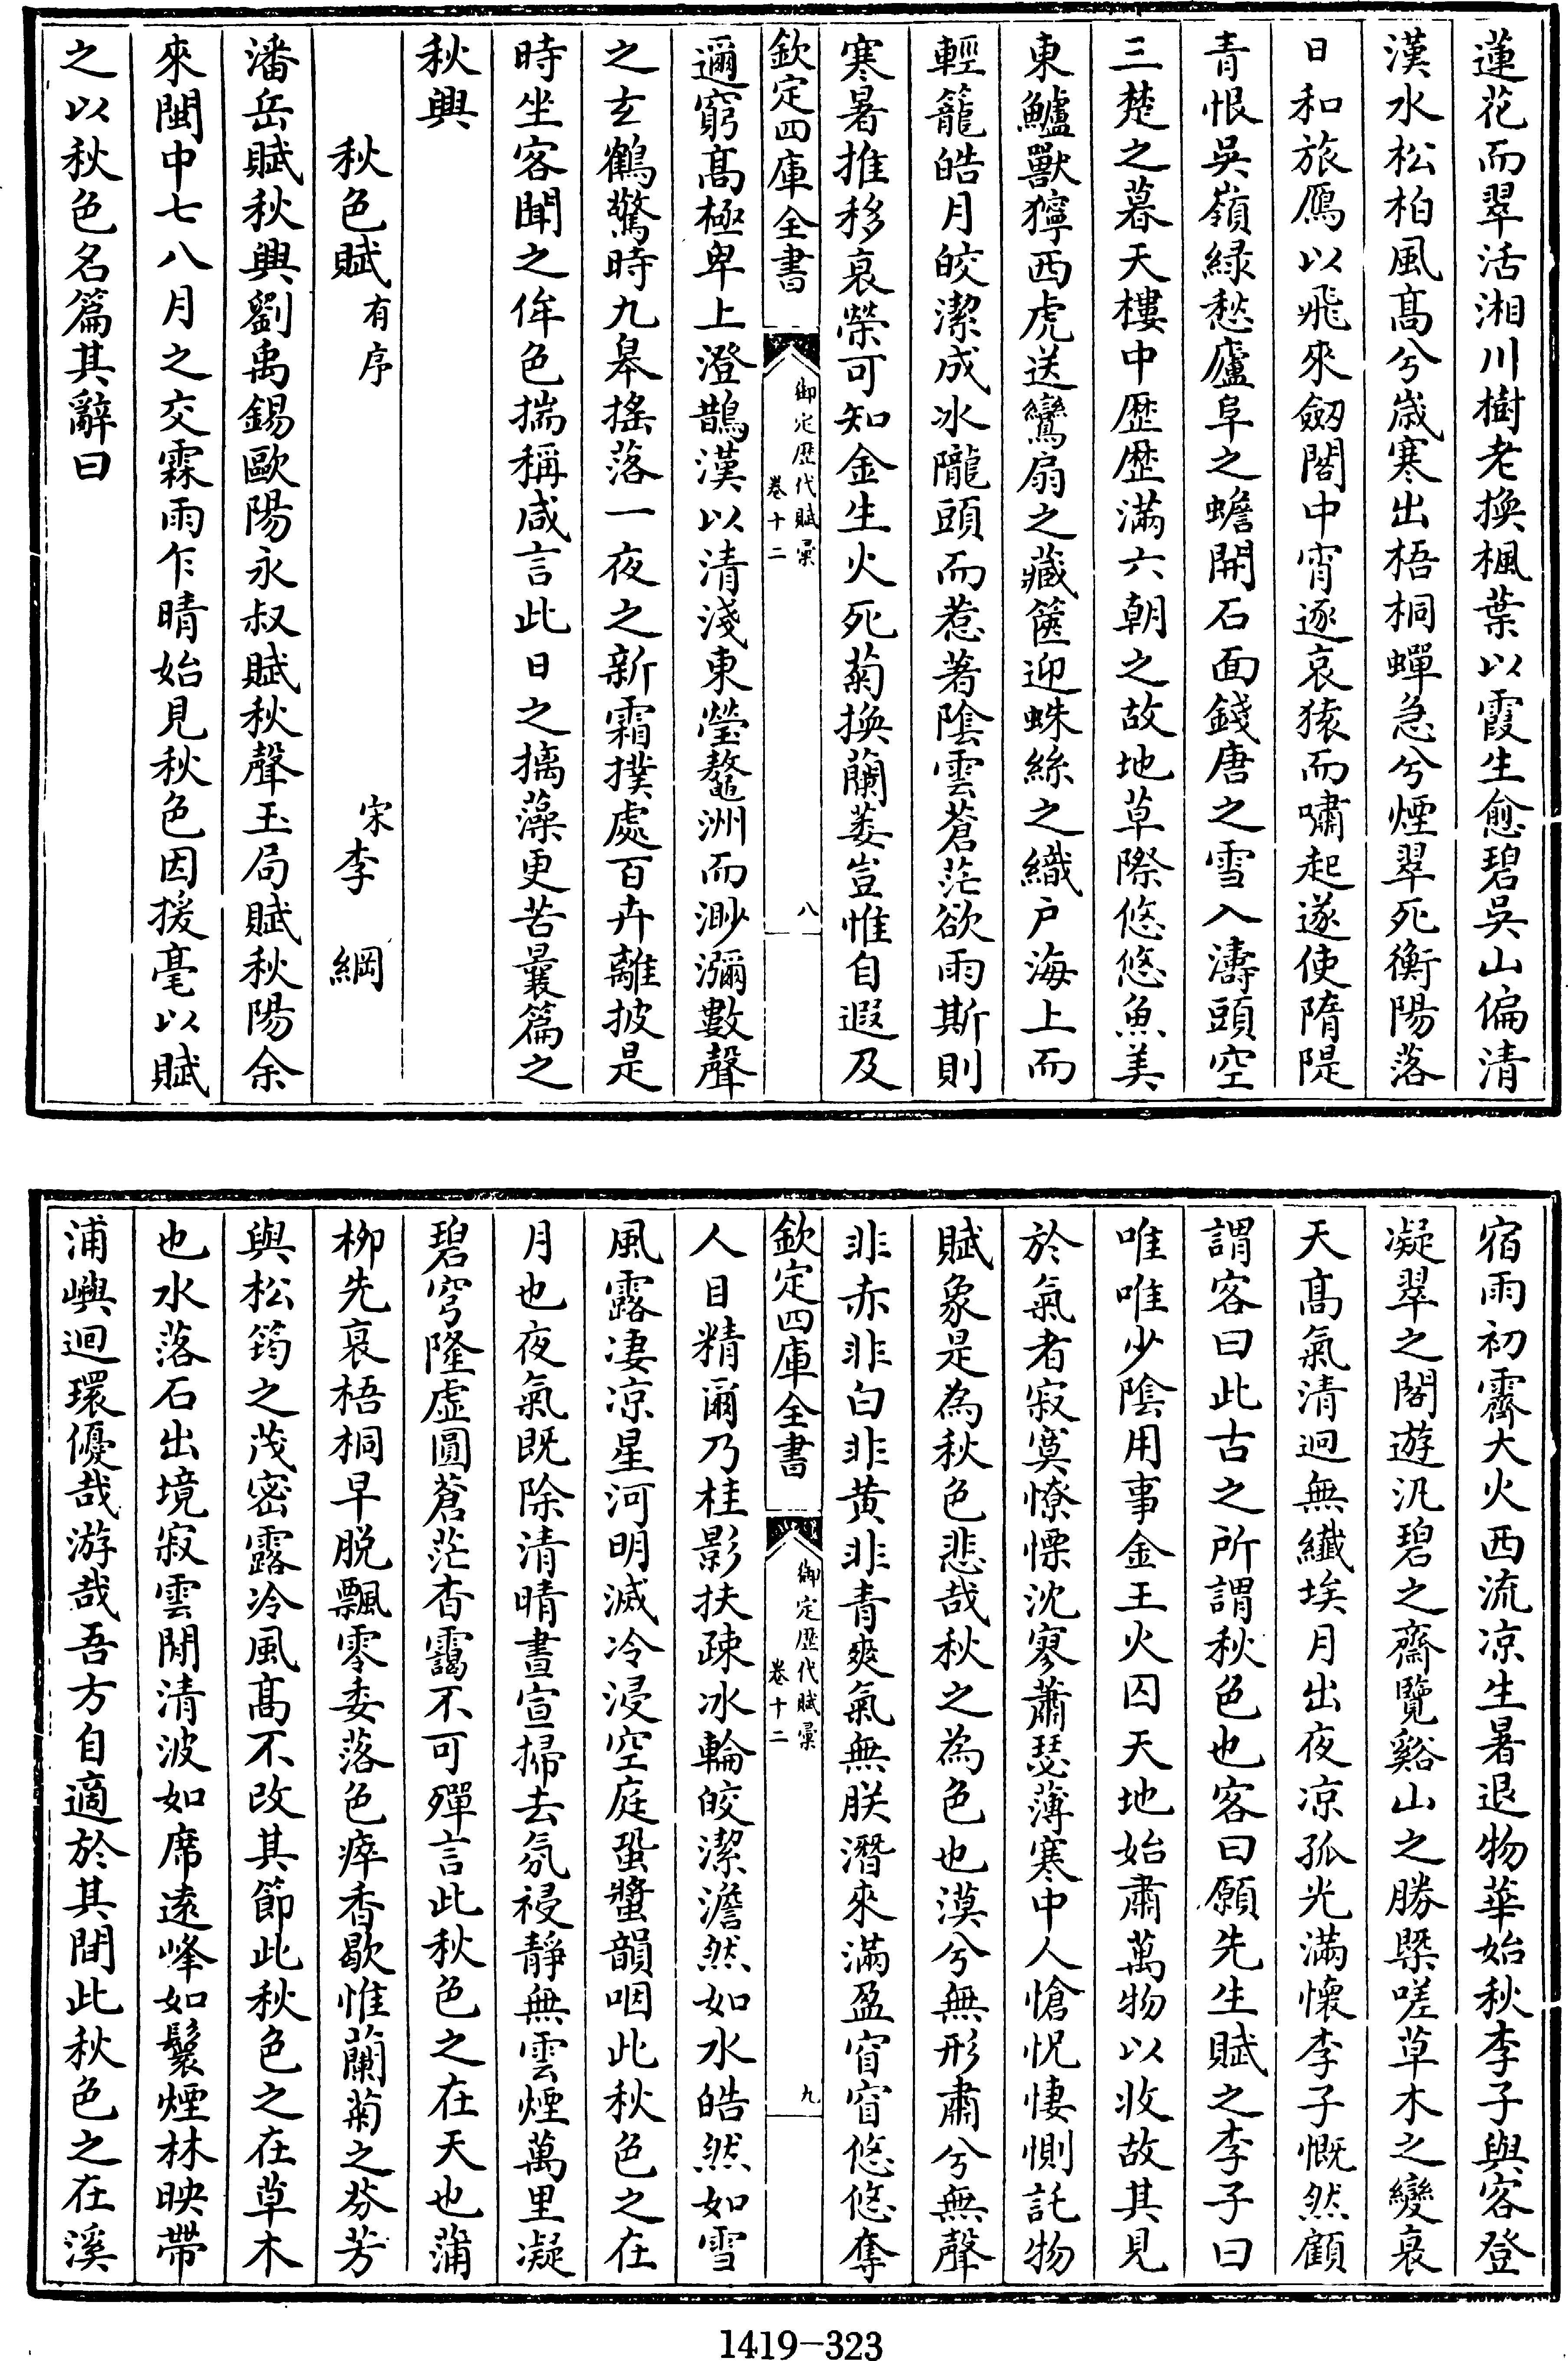 蓮花而翠活湘川樹老換楓葉以霞生愈碧吳山偏清
漢水松柏風髙兮嵗寒出梧桐蟬急兮煙翠死衡陽落
日和旅鴈以飛來劔閣中宵逐哀猿而嘯起遂使隋隄
青恨吳嶺緑愁廬阜之蟾開石面錢唐之雪入濤頭空
三楚之暮天樓中歴歴滿六朝之故地草際悠悠魚美
東鱸獸獰西虎送鸞扇之藏篋迎蛛絲之織户海上而
輕籠皓月皎潔成冰隴頭而惹著隂雲蒼茫欲雨斯則
寒暑推移哀榮可知金生火死菊換蘭萎豈惟自遐及
欽定四庫全書
御定歴代賦彙
卷十二
八
邇窮髙極卑上澄鵲漢以清淺東瑩鼇洲而渺瀰數聲
之玄鶴驚時九皋搖落一夜之新霜撲處百卉離披是
時坐客聞之侔色揣稱咸言此日之摛藻更苦曩篇之
秋興
秋色賦有序
宋李 綱
潘岳賦秋興劉禹錫歐陽永叔賦秋聲玉局賦秋陽余
來閩中七八月之交霖雨乍晴始見秋色因援毫以賦
之以秋色名篇其辭曰
宿雨初霽大火西流凉生暑退物華始秋李子與客登
凝翠之閣遊汎碧之齋覽谿山之勝槩嗟草木之變衰
天髙氣清迥無纖埃月出夜凉孤光滿懐李子慨然顧
謂客曰此古之所謂秋色也客曰願先生賦之李子曰
唯唯少隂用事金王火囚天地始肅萬物以收故其見
於氣者寂寞憭慄沈寥蕭瑟薄寒中人愴怳悽惻託物
賦象是為秋色悲哉秋之為色也漠兮無形肅兮無聲
非赤非白非黄非青爽氣無朕潛來滿盈窅窅悠悠奪
欽定四庫全書
御定歴代賦彙
卷十二
九
人目精爾乃桂影扶疎冰輪皎潔澹然如水皓然如雪
風露凄凉星河明滅冷浸空庭蛩螿韻咽此秋色之在
月也夜氣既除清晴晝宣掃去氛祲靜無雲煙萬里凝
碧穹隆虚圓蒼茫杳靄不可殫言此秋色之在天也蒲
柳先衰梧桐早脱飄零委落色瘁香歇惟蘭菊之芬芳
與松筠之茂密露冷風髙不改其節此秋色之在草木
也水落石出境寂雲閒清波如席逺峰如鬟煙林映帶
浦嶼迴環優哉游哉吾方自適於其間此秋色之在溪
1419-323